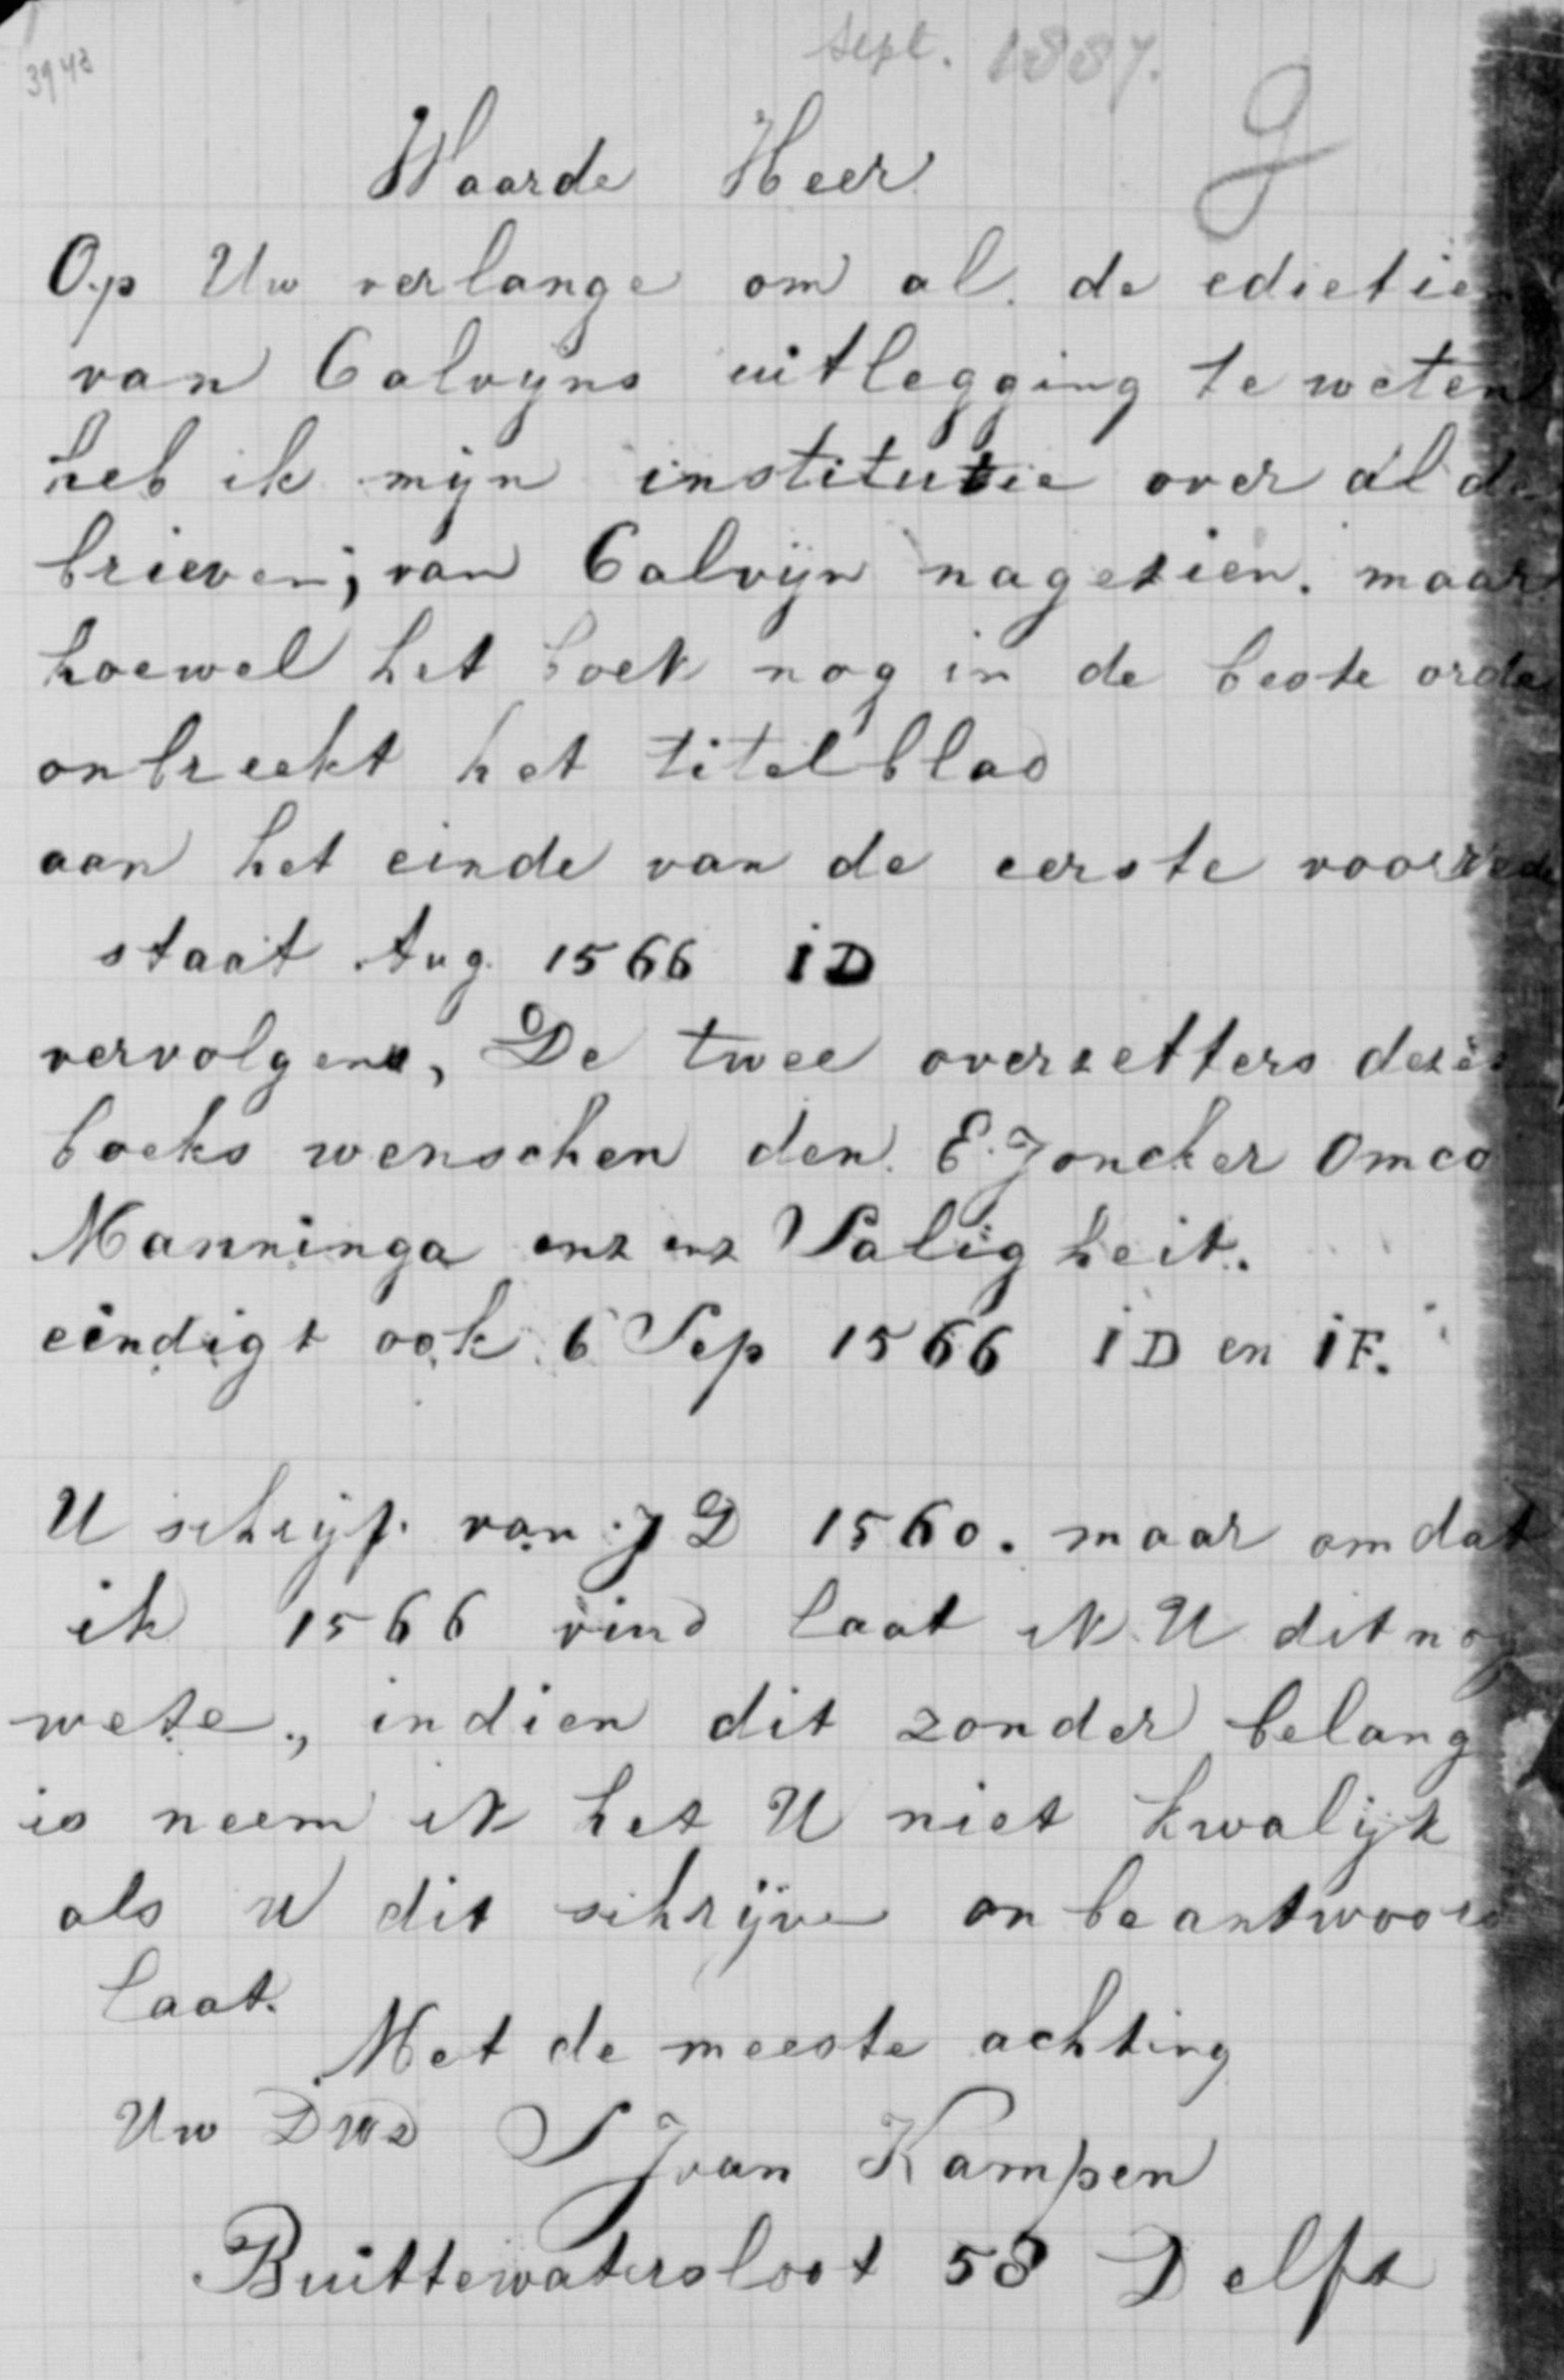 3942
sept. 1887.
g
Waarde Heer
Op Uw verlange om al de edietien
van Calvyns uitlegging te weten
heb ik mijn institutie over al de
brieven, van Calvijn nagezien. maar
hoewel het boek nog in de beste orde
onbreekt het titelblad
aan het einde van de eerste voorrede
staat Aug. 1566 iD
vervolgens, De twee overzetters dezes
boeks wenschen den E. Joncker Omco
Manninga enz enz Saligheit.
eindigt ook 6 Sep 1566 iD en iF.
U schrijf van JD 1560. maar omdat
ik 1566 vind laat ik U dit nog
wete., indien dit zonder belang
is neem ik het U niet kwalijk
als U dit schrijve onbeantwoord
laat.
Met de meeste achting
Uw DWD S J van Kampen
Buittewatersloot 58 Delft